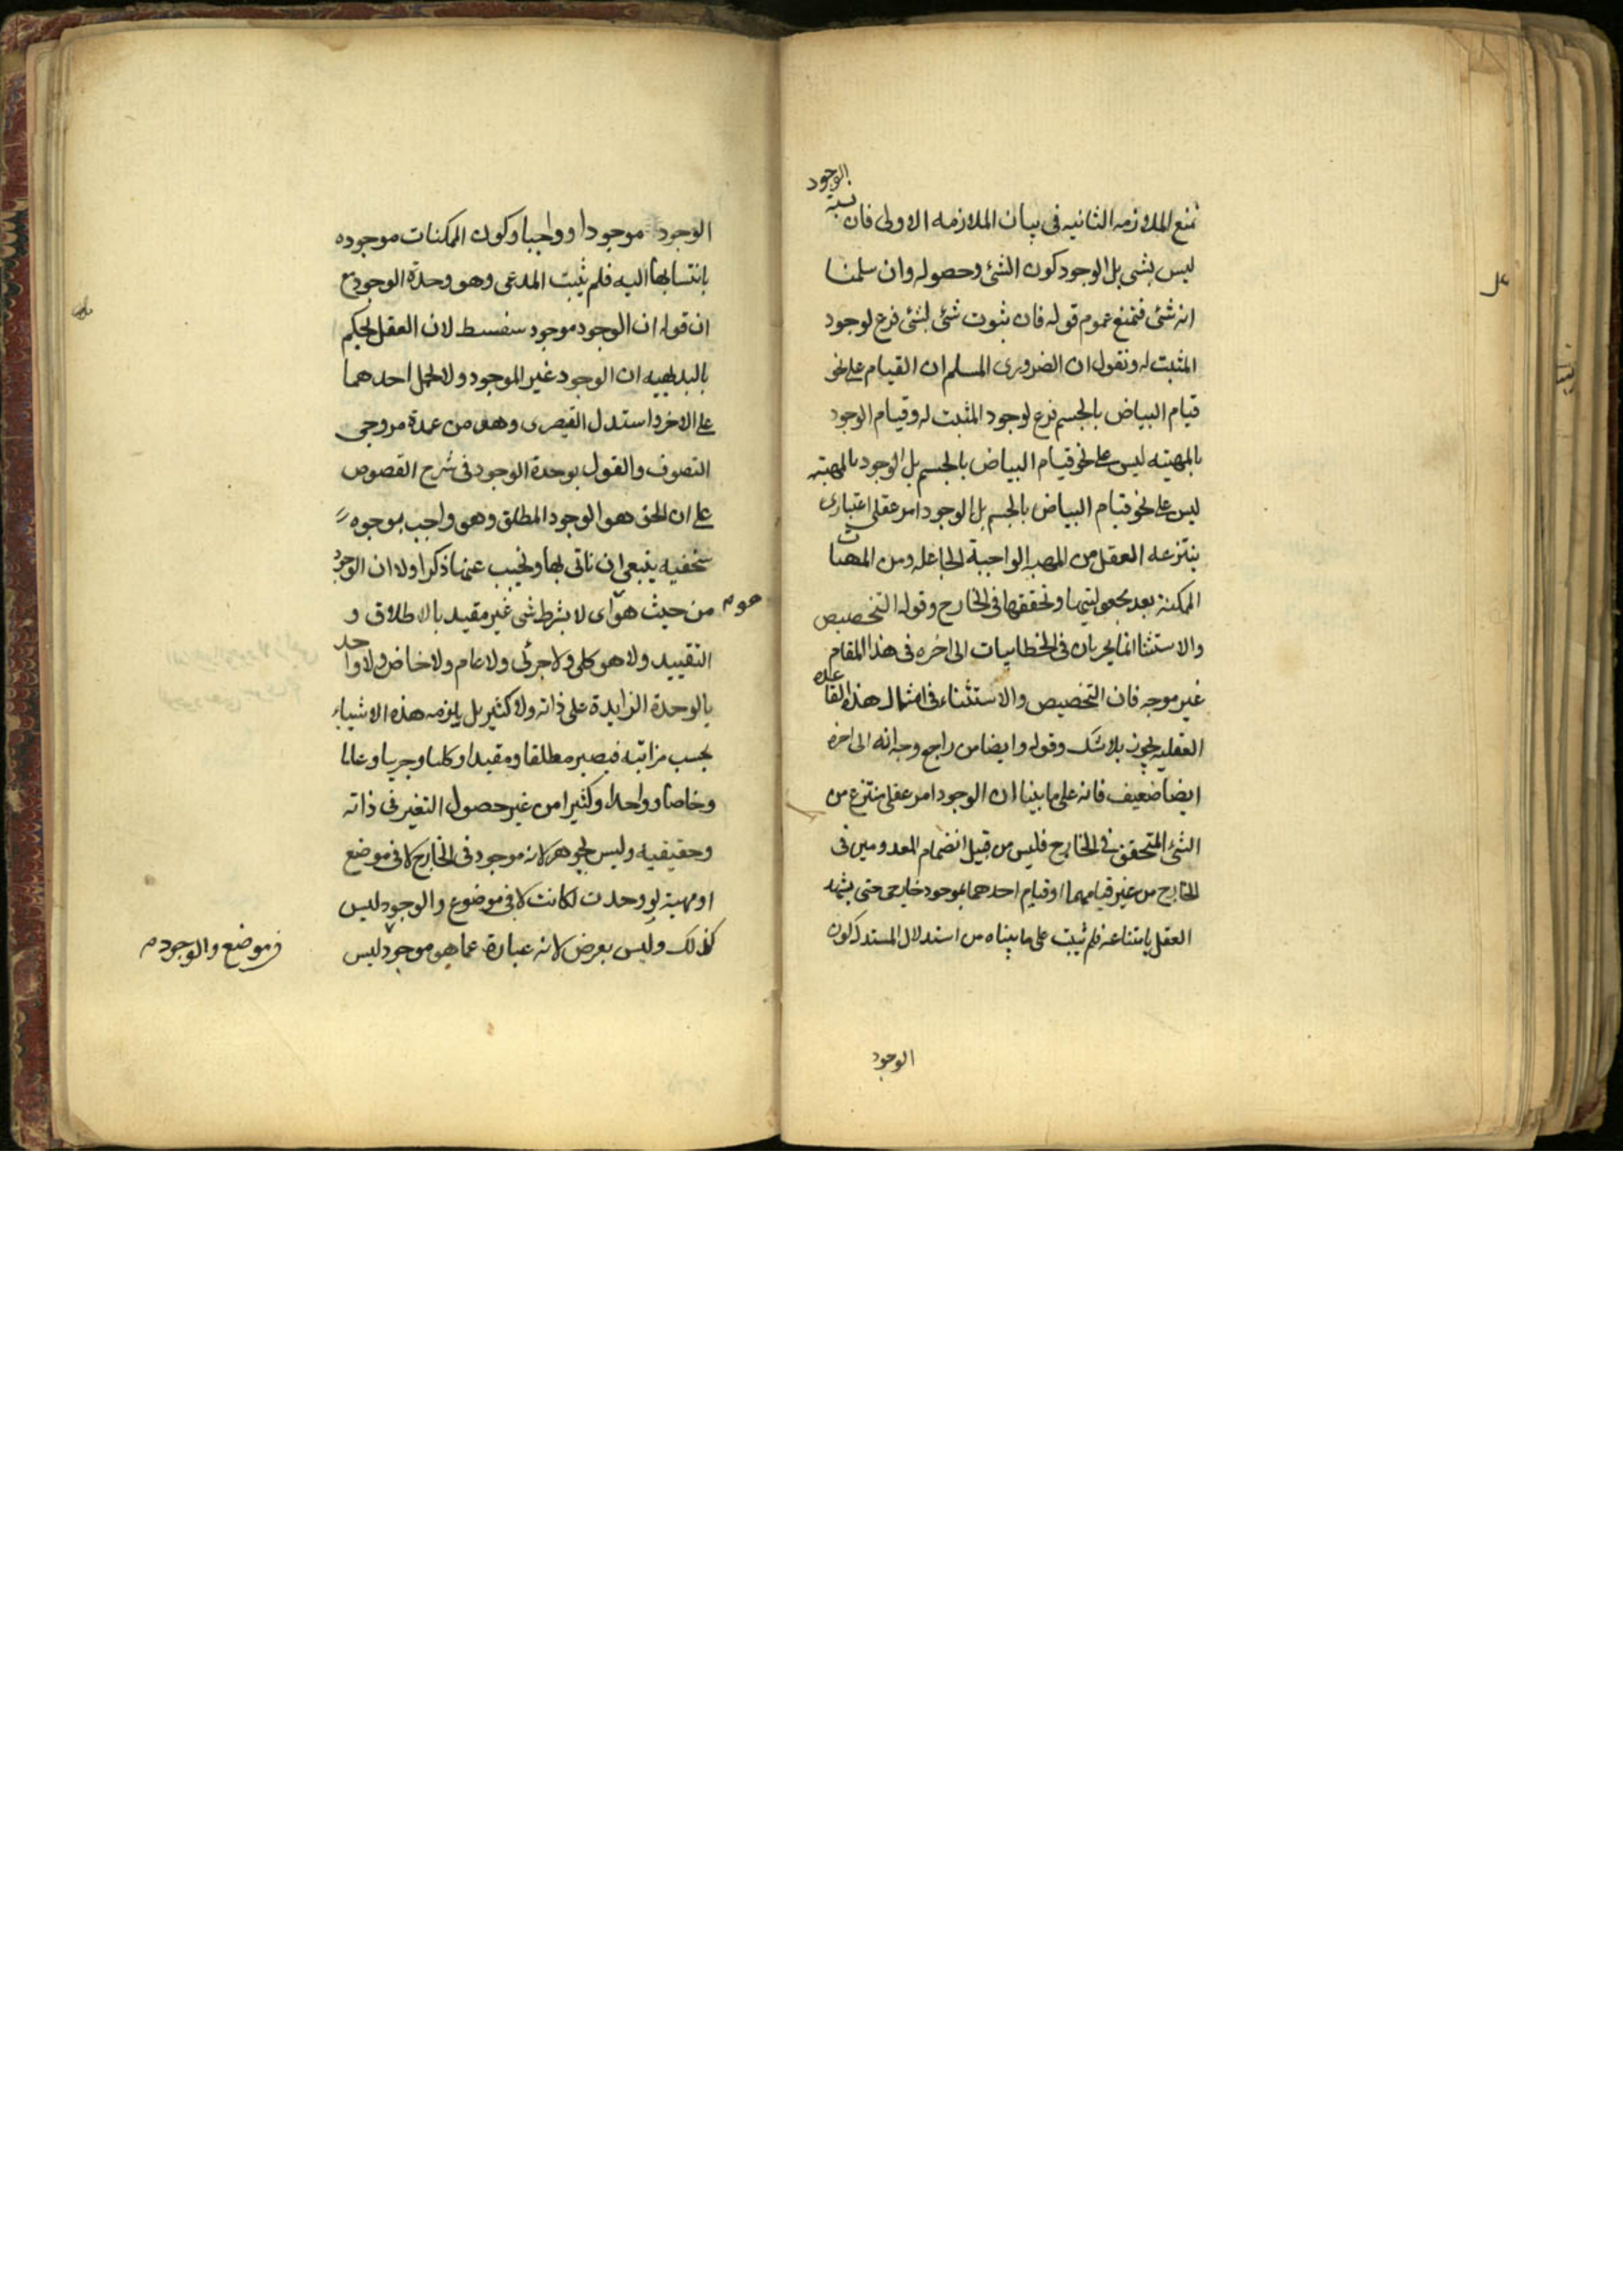 الوجود
نسبة
نمنع الملازمه الثانيه فى بيان الملازمه الاولى فان
ليس بشى بل الوجود كون الشئ وحصوله وان سلمنا
انه شئ فنمنع عموم قوله فان ثبوت شئ لشئ فرع لوجود
المثبت له ونقول ان الضرورى المسلم ان القيام على نحو
قيام البياض بالجسم فرع لوجود المثبت له وقيام الوجود
بالمهيته ليس على نحو قيام البياض بالجسم بل الوجود بالمهيته
ليس على نحو قيام البياض بالجسم بل الوجود امر عقلى اعتبارى
ينتزعه العقل من المهيه الواجبة الجاعله ومن المهيات
الممكنة بعد مجعوليتها وتحققها فى الخارج وقوله التخصيص
والاستثنا انما يجريان فى الخطابيات الى اخره فى هذا المقام
غير موجه فان التخصيص والاستثناء فى امثال هذه القاعده
العقليه يجوز بلا شك وقوله وايضا من راجع وجدانه الى اخره
ايضا ضعيف فانه على ما بينا ان الوجود امر عقلى منتزع من
الشئ المتحقق فى الخارج فليس من قبيل انضمام المعدومين فى
الخارج من غير قيامهما او قيام احدهما بموجود خارجى حتى يشهد
العقل بامتناعه فلم يثبت على ما بيناه من استدلال المستدل كون
الوجود
الوجود موجودا وواجبا وكون الممكنات موجوده
بانتسابها اليه فلم يثبت المدعى وهو وحدة الوجود مع
ان قوله ان الوجود موجود سفسط لان العقل يحكم
بالبديهيه ان الوجود غير الموجود ولا يحمل احدهما
على الاخر واستدل القيصرى وهو من عمدة مروجى
التصوف والقول بوحدة الوجود فى شرح الفصوص
على ان الحق هو الوجود المطلق وهو واجب بوجوه
سخفيه ينبغى ان ناتى بها ونجيب عنها ذكر اولا ان الوجود
من حيث هو اى لا بشرط شى غير مقيد بالاطلاق و
هو م
التقييد ولا هو كلى ولا جرئى ولا عام ولا خاص ولا واحد
بالوحدة الزايدة على ذاته ولا كثير بل يلزمه هذه الاشياء
بحسب مراتبه فيصير مطلقا ومقيدا وكليا وجريا وعاما
وخاصا وواحدا وكثيرا من غير حصول التغير فى ذاته
وحقيقيه وليس بجوهر لانه موجود فى الخارج لا فى موضع
او مهية لو وجدت لكانت لا فى موضوع والوجود ليس
كذلك وليس بعرض لانه عبارة عما هو موجود ليس
فى موضع والوجود م